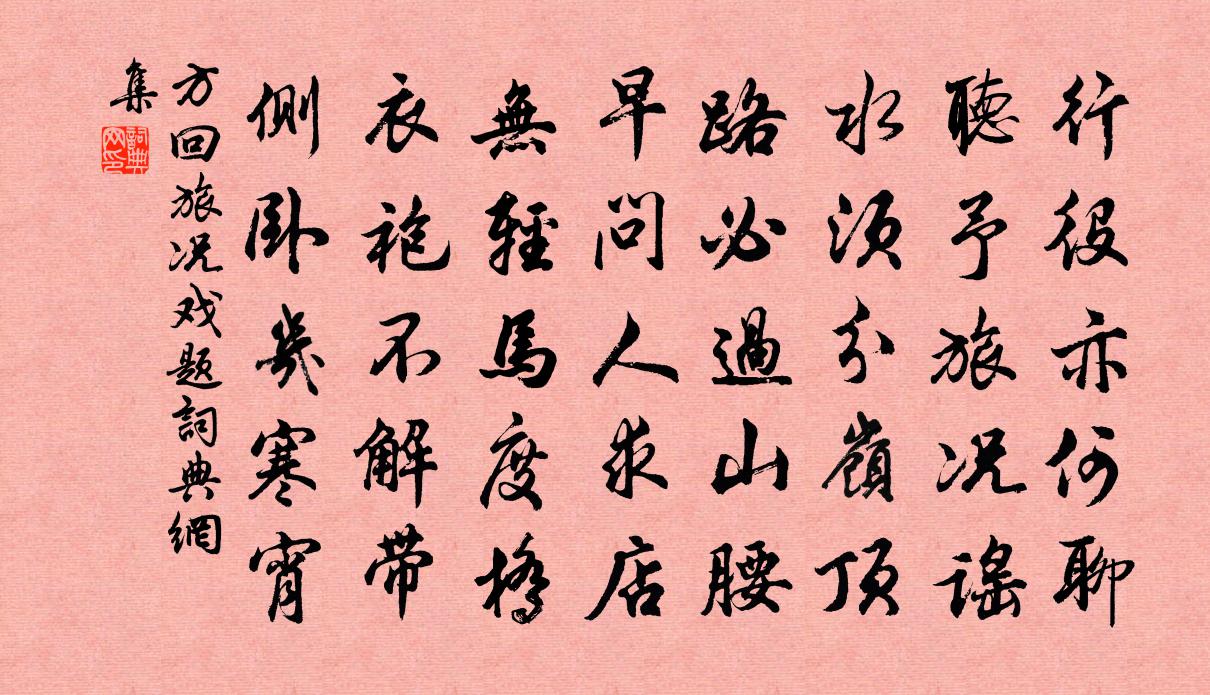 行役亦何聊
聽予旅况謡
水須分嶺頂
路必過山腰
早問人求店
無輕馬度橋
衣袍不解带
側卧幾寒宵
方回旅况戏题詞典網
集
詞典网印